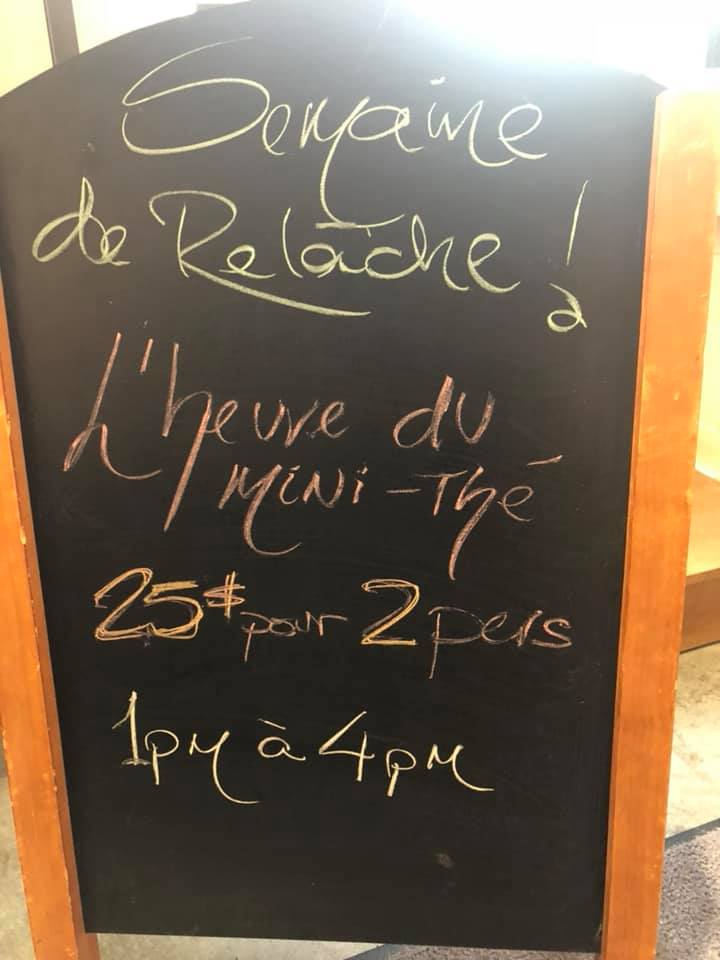 Semaine
de Relâche!
L'heure du
Mini-Thé
25$ pour 2 pers
1pm à 4pm